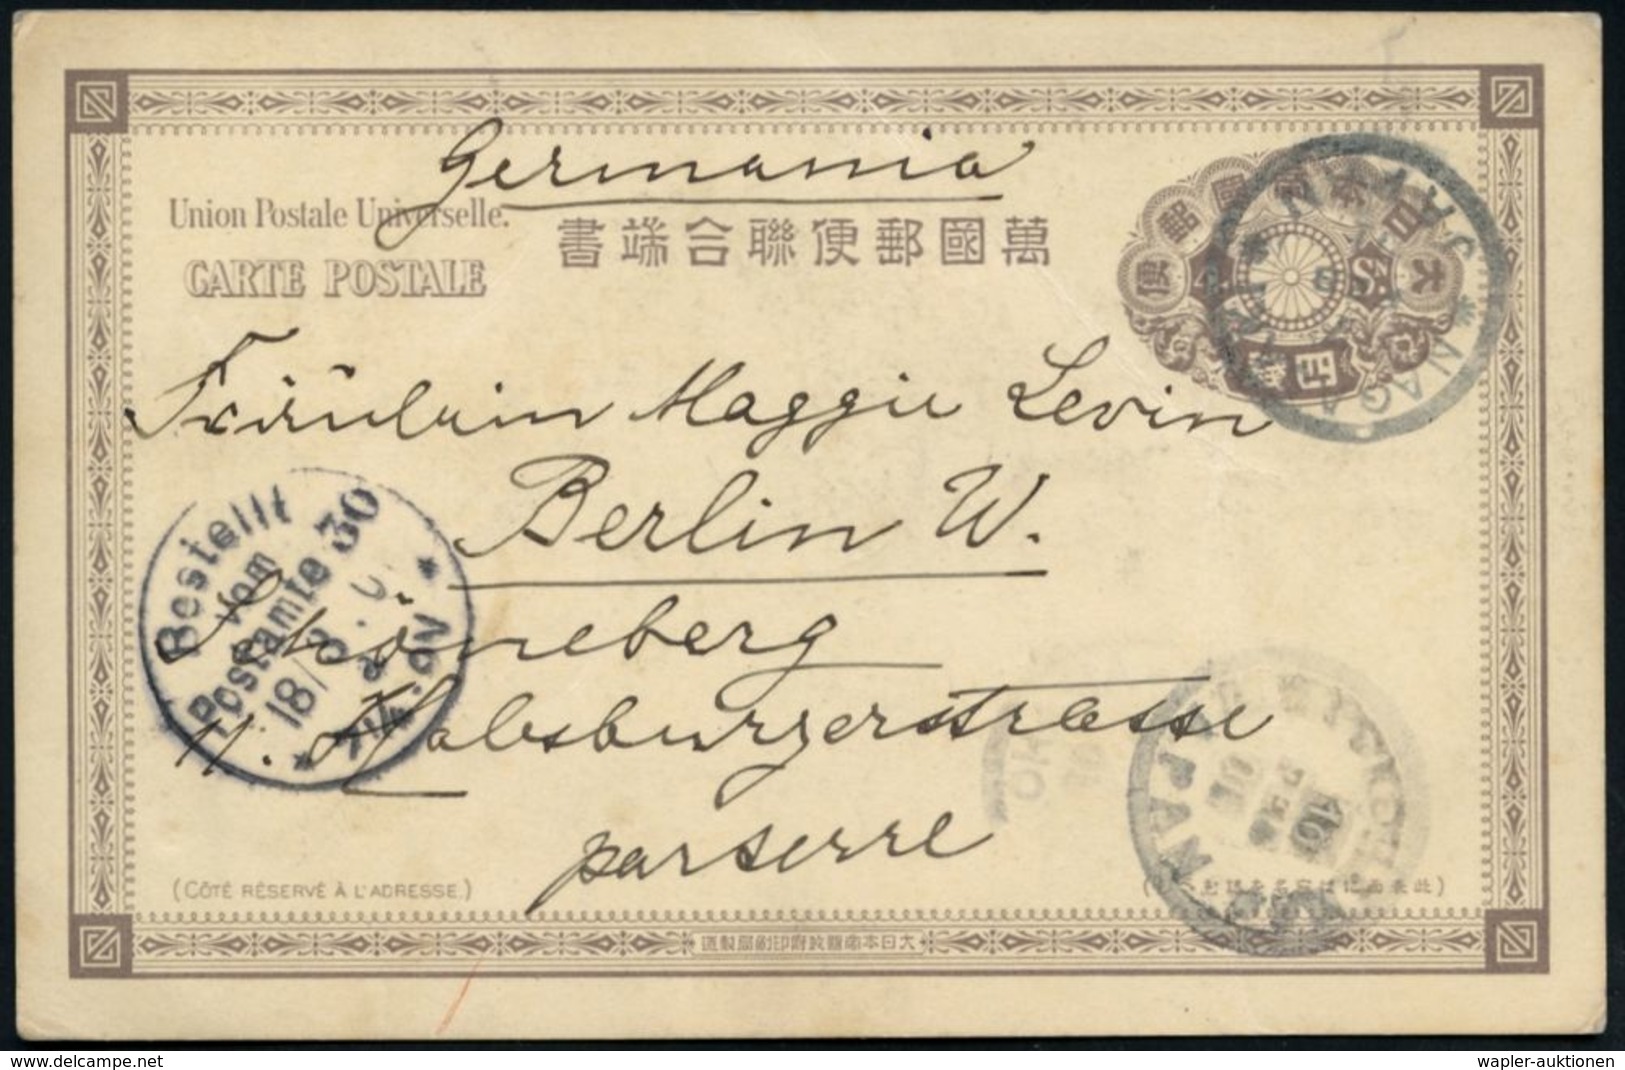 Germania
Union Postale Universelle.
CARTE POSTALE
萬國郵便聯合端書
NAGASAKI
JAPAN
Fräulein Maggie Levin
Berlin W.
Schöneberg
11. Habsburgerstrasse
parterre
Bestellt
vom
Postamte 30
18/8
JAPAN
(CÔTÉ RÉSERVÉ À L'ADRESSE.)
大日本帝國政府印刷局製造
delcampe.net
wapler-auktionen